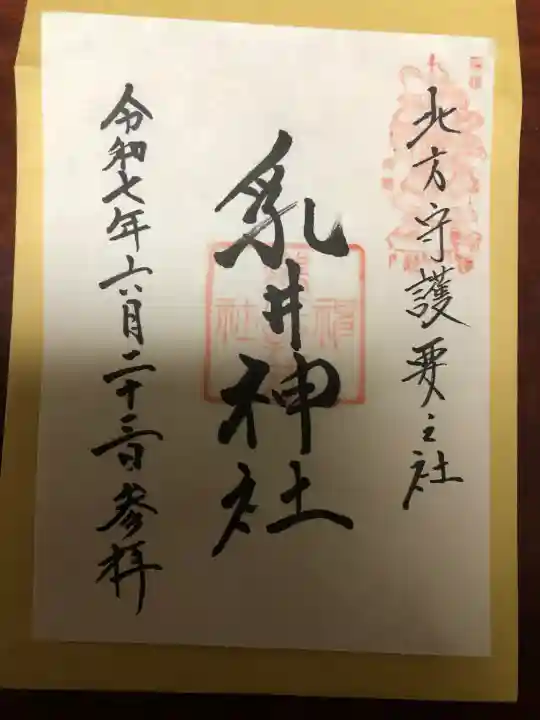 北方守護要之社
乳井神社
令和七年六月二十三日参拝